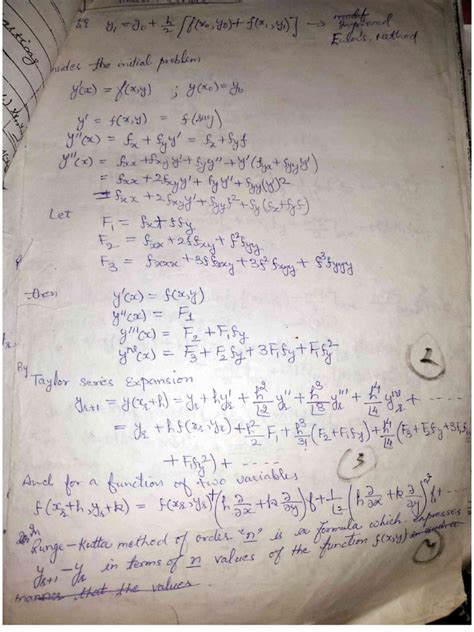 y₁ = y₀ + h/2 [f(x₀,y₀) + f(x₁,y₁)] → Improved
Euler's Method
the initial problem
y'(x) = f(x,y) ; y(x₀) = y₀
y' = f(x,y) = f (say)
y''(x) = fx + fy y' = fx + fy f
y'''(x) = fxx + fxy y' + fy y'' + y'(fyx + fyy y')
= fxx + 2fxy y' + fy y'' + fyy (y')²
= fxx + 2fxy y' + fyy f² + fy (fx + fy f)
Let F₁ = fx + f fy
F₂ = fxx + 2f fxy + f² fyy
F₃ = fxxx + 3f fxxy + 3f² fxyy + f³ fyyy
then y'(x) = f(x,y)
y''(x) = F₁
y'''(x) = F₂ + F₁fy
yⁱᵛ(x) = F₃ + F₂fy + 3F₁fy + F₁fy²
2
By Taylor series Expansion
yᵣ₊₁ = y(xᵣ+h) = yᵣ + hyᵣ' + h²/⌊2 yᵣ'' + h³/⌊3 yᵣ''' + h⁴/⌊4 yᵣⁱᵛ + ----
= yᵣ + hf(xᵣ,yᵣ) + h²/2 F₁ + h³/3! (F₂+F₁fy) + h⁴/⌊4 (F₃ + F₂fy + 3F₁
+ F₁fy²) + -----
3
And for a function of two variables
f(xᵣ+h, yᵣ+k) = f(xᵣ,yᵣ) + (h ∂/∂x + k ∂/∂y) f + 1/⌊2 (h ∂/∂x + k ∂/∂y)² f + ---
Runge-Kutta method of order "n" is a formula which expresses
yᵣ₊₁ - yᵣ in terms of n values of the function f(x,y) in such
manner that the values